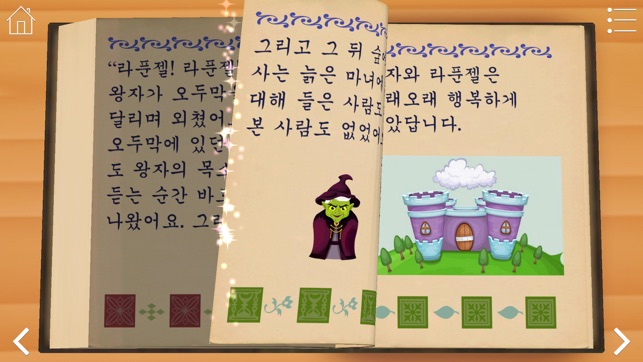 “라푼젤! 라푼젤
왕자가 오두막
달리며 외쳤어
오두막에 있던
도 왕자의 목
듣는 순간 바
나왔어요.
그리고 그 뒤
사는 늙은 마녀에
대해 들은 사람도
본 사람도 없었어
자와 라푼젤은
래오래 행복하게
았답니다.